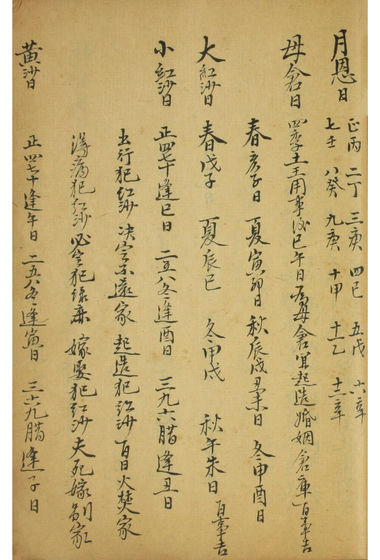 月恩日
正丙 二丁 三庚 四巳 五戊 六辛
七壬 八癸 九庚 十甲 十一乙 十二辛
母倉日 四季土王用事後巳午日為母倉宜起造婚姻倉庫百事吉
春亥子日 夏寅卯日 秋辰戌丑未日 冬申酉日
大紅沙日 春戊子 夏辰巳 冬甲戌 秋午未日 百事吉
小紅沙日 正四七十逢巳日 二五八十一逢酉日 三九六腊逢丑日
出行犯紅沙 決定不還家 起造犯紅沙 百日火焚家
得病犯紅沙 必定犯 嫁娶犯紅沙 夫死嫁別家
黄沙日 正四七十逢午日 二五八十一逢寅日 三六九腊逢子日